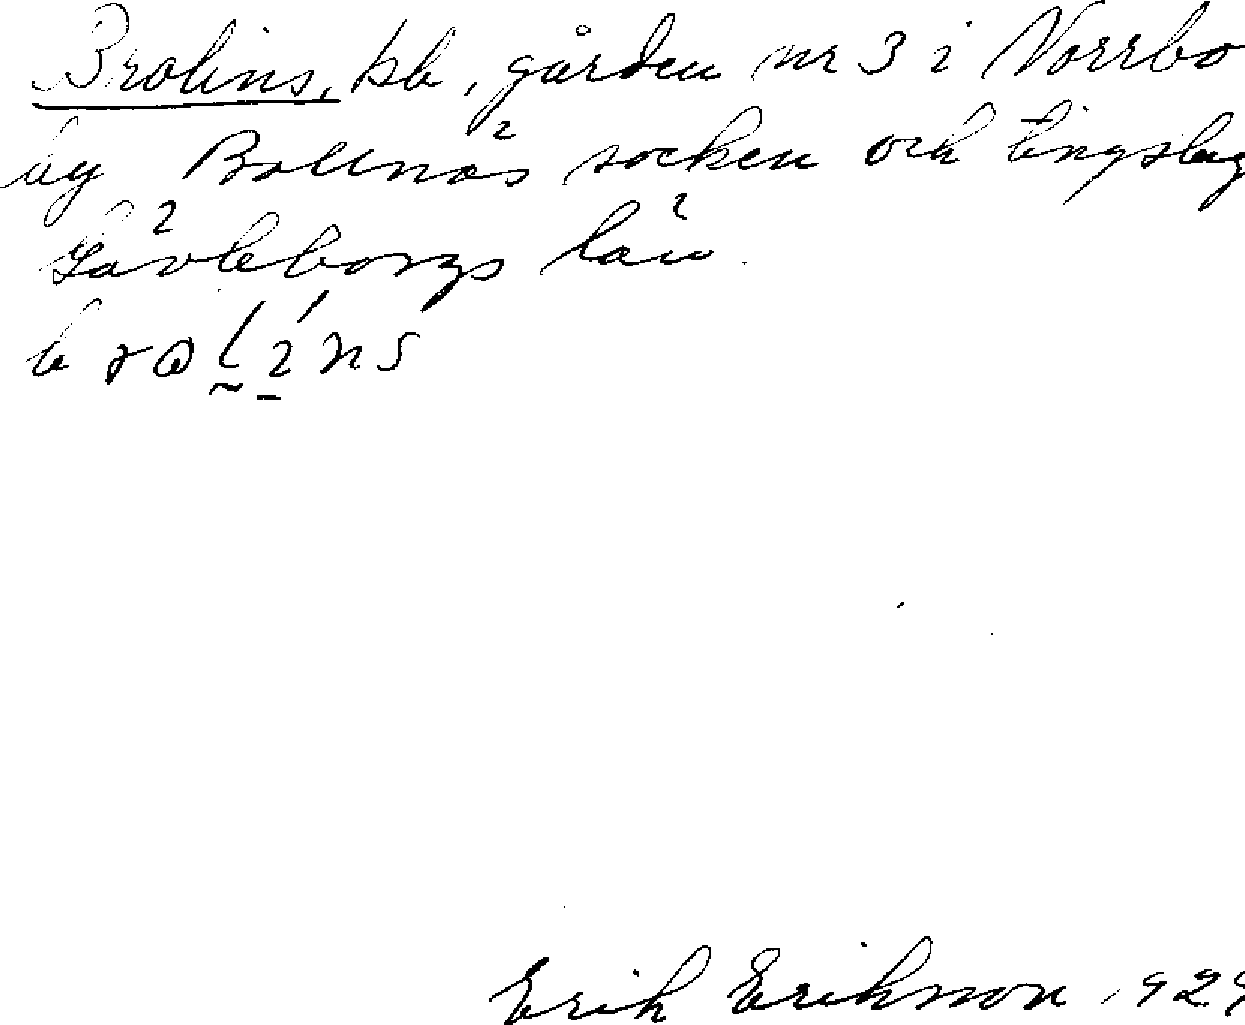 Brolins, kb, gården nr 3 i Norrbo
by Bollnäs socken och tingslag
Gävleborgs län.
Erik Erikson 1929